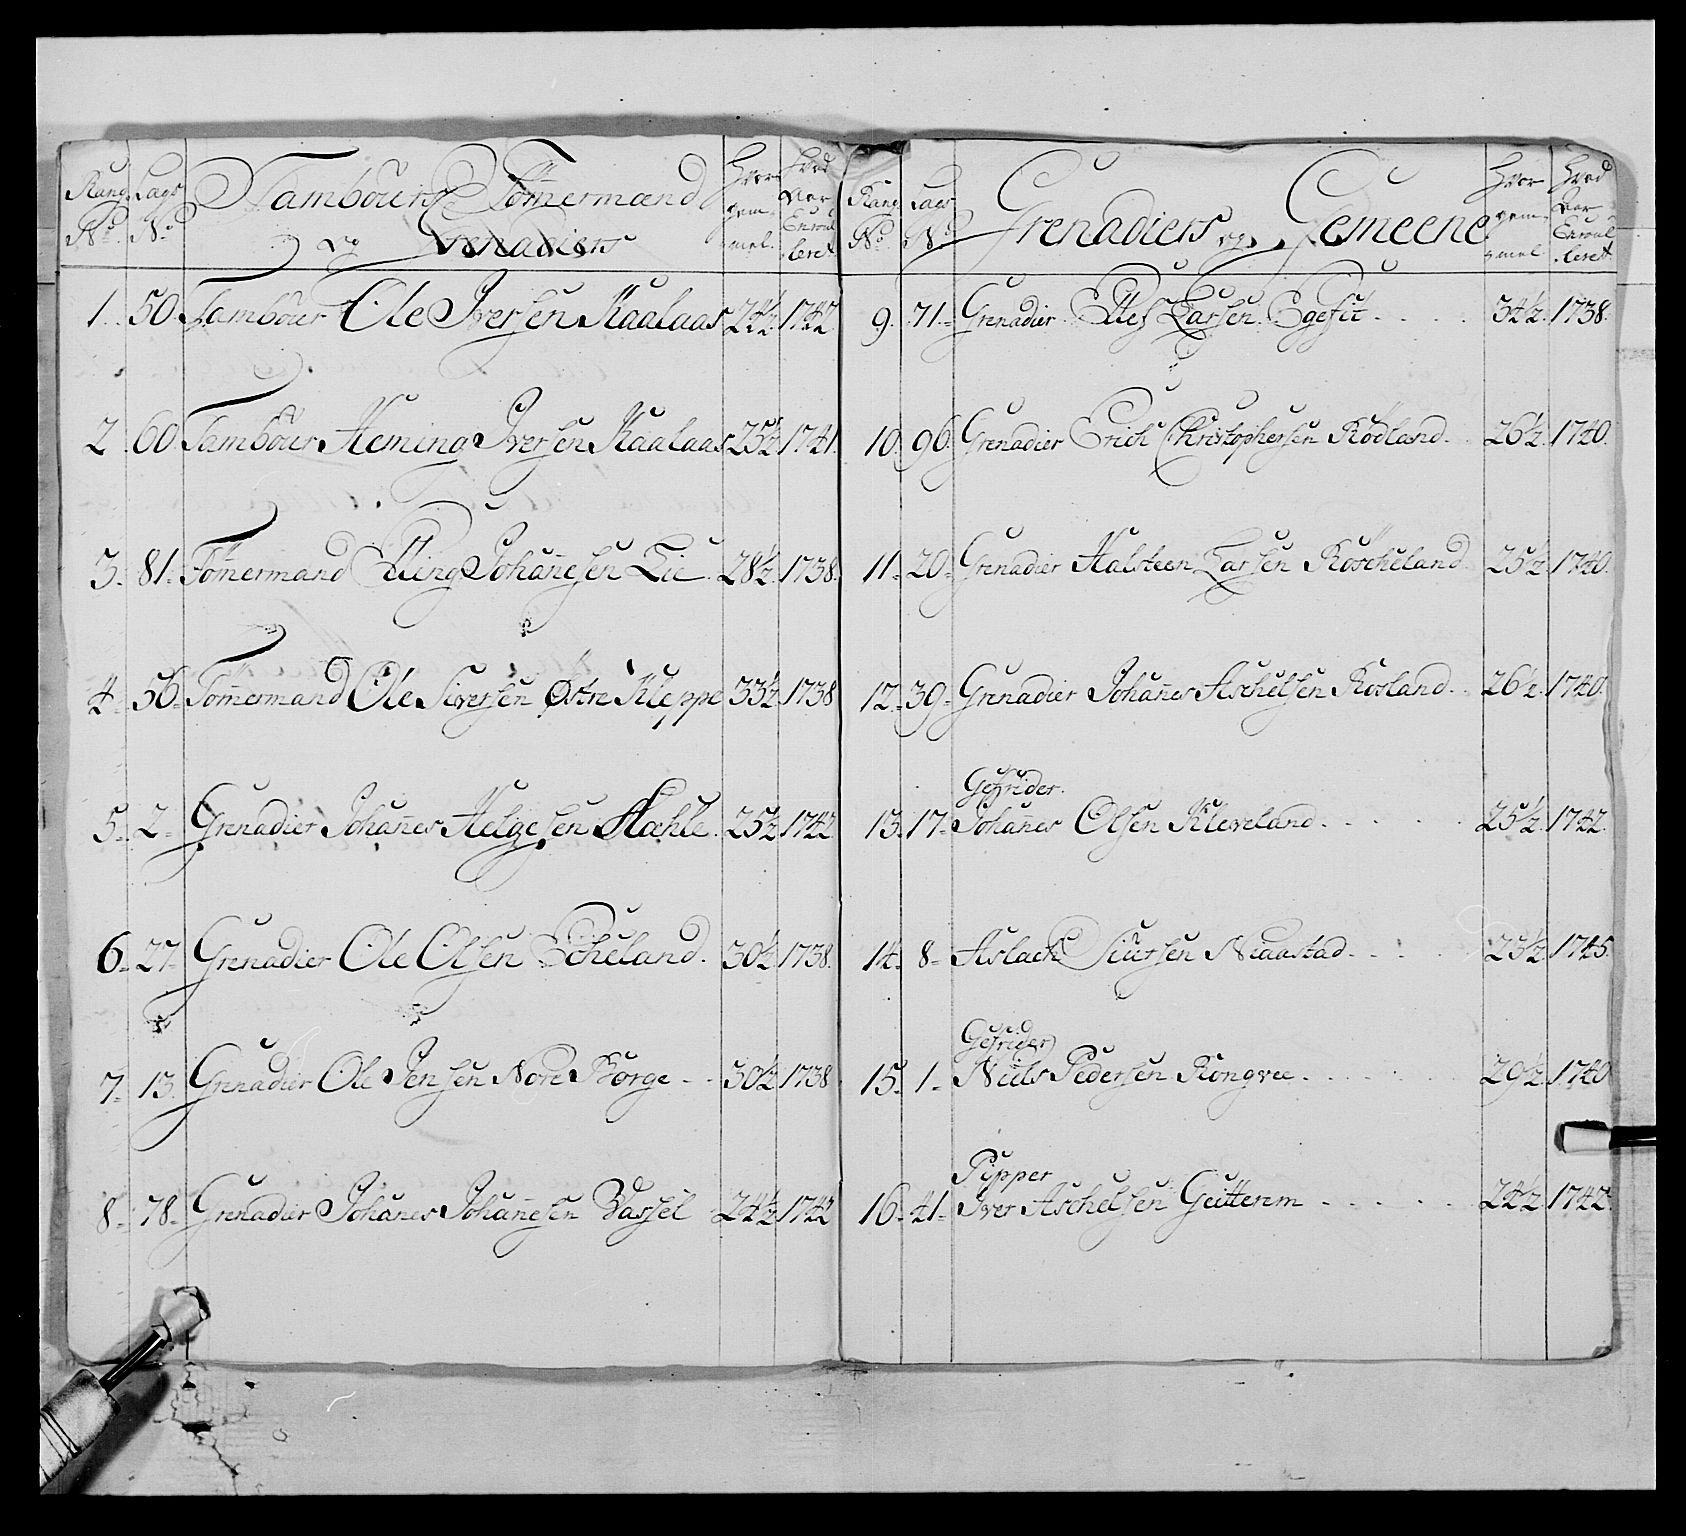 Rang Lags Tambours Tömermænd Hvor Hvad
No. No. og Grenadiers gem- Aar
mel. Enroul
leret
1. 50. Tambour Ole Iversen Kaalaas 24½ 1742
2. 60. Tambour Heming Iversen Kaalaas 25½ 1741.
3. 81. Tömermand Elling Johanesen Lie. 28½ 1738.
4. 56. Tömermand Ole Siversen Østre Kleppe 33½ 1738
5. 2. Grenadier Johanes Helgesen Mæhle. 25½ 1742
6. 27. Grenadier Ole Olsen Echeland. 30½ 1738.
7. 13. Grenadier Ole Jensen Nore Borge 30½ 1738
8. 78. Grenadier Johanes Johanesen Vassel 24½ 1742
Rang Lags Grenadiers og Gemeene Hvor Hvad
No. No. gem- Aar
mel Enroul
leret
9. 71. Grenadier Larsen Egeset 34½ 1738.
10. 96. Grenadier Erich Christophersen Rödland. 26½ 1740.
11. 20. Grenadier Halsteen Larsen Röscheland 25½ 1740.
12. 39. Grenadier Johanes Aschelsen Rosland. 26½ 1740.
Gefrider.
13. 17. Johanes Olsen Kleveland. 25½ 1742.
14. 8. Aslach Siursen Niaastad. 23½ 1745.
Gefrider
15. 1. Niels Pedersen Rongvee. 29½ 1740
Pipper
16. 41. Iver Aschelsen Geitterem 24½ 1742